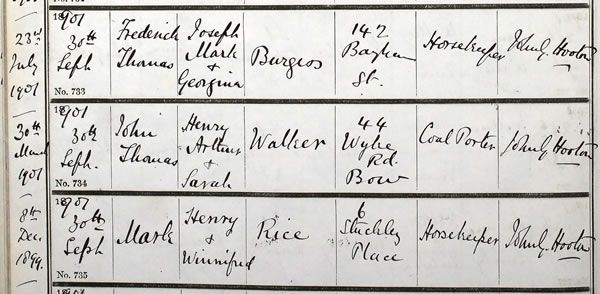 23rd July 1901
1901 30th Sept. Frederick Thomas Joseph Mark & Georgina Burgess 142 Bayham St. Horsekeeper John G. Hooton
No. 733
30th March 1901
1901 30th Sept. John Thomas Henry Arthur & Sarah Walker 44 Wylie Rd. Bow Coal Porter John G. Hooton
No. 734
8th Dec. 1899.
1901 30th Sept Mark Henry & Winnifred Rice 6 Stuckley Place Horsekeeper John G. Hooton
No. 735